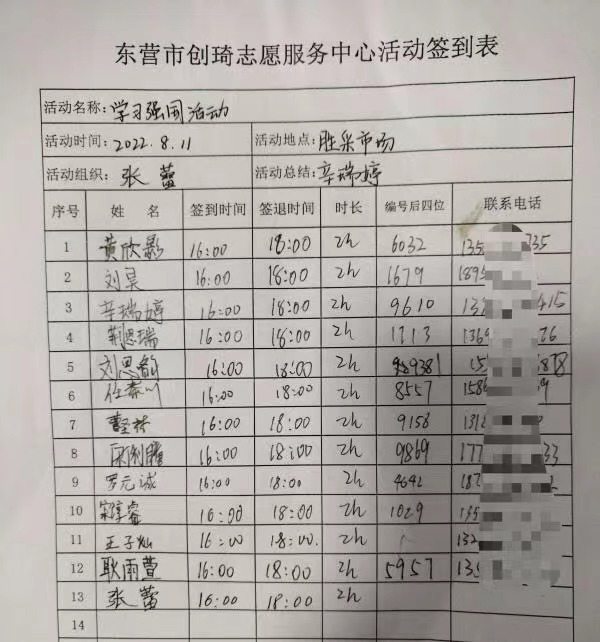 东营市创琦志愿服务中心活动签到表
活动名称：学习强国活动
活动时间：2022.8.11 活动地点：胜采市场
活动组织：张蕾 活动总结：辛瑞婷
序号 姓 名 签到时间 签退时间 时长 编号后四位 联系电话
1 黄欣影 16:00 18:00 2h 6032
2 刘昊 16:00 18:00 2h 1679
3 辛瑞婷 16:00 18:00 2h 9610
4 荆恩瑞 16:00 18:00 2h 1713
5 刘思韵 16:00 18:00 2h
6 16:00 18:00 2h 8557
7 16:00 18:00 2h 9158
8 16:00 18:00 2h 9869
9 罗元诚 16:00 18:00 2h 4642
10 宋享睿 16:00 18:00 2h 1029
11 王子灿 16:00 18:00. 2h
12 耿雨萱 16:00 18:00 2h 5957
13 张蕾 16:00 18:00 2h
14